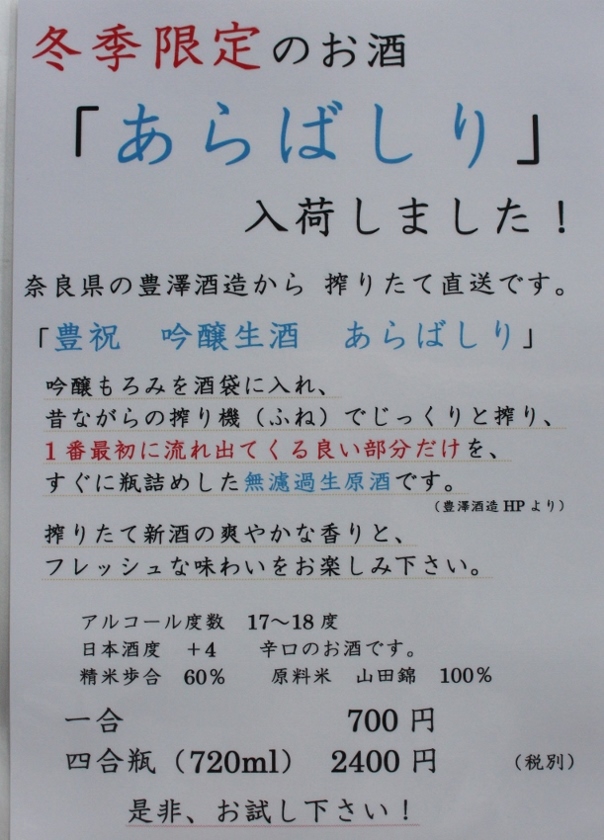 冬季限定のお酒
「あらばしり」
入荷しました!
奈良県の豊澤酒造から 搾りたて直送です。
「豊祝 吟醸生酒 あらばしり」
吟醸もろみを酒袋に入れ、
昔ながらの搾り機(ふね)でじっくりと搾り、
1番最初に流れ出てくる良い部分だけを、
すぐに瓶詰めした無濾過生原酒です。
(豊澤酒造HPより)
搾りたて新酒の爽やかな香りと、
フレッシュな味わいをお楽しみ下さい。
アルコール度数 17~18度
日本酒度 +4 辛口のお酒です。
精米歩合 60% 原料米 山田錦 100%
一合 700円
四合瓶(720ml) 2400円 (税別)
是非、お試し下さい!